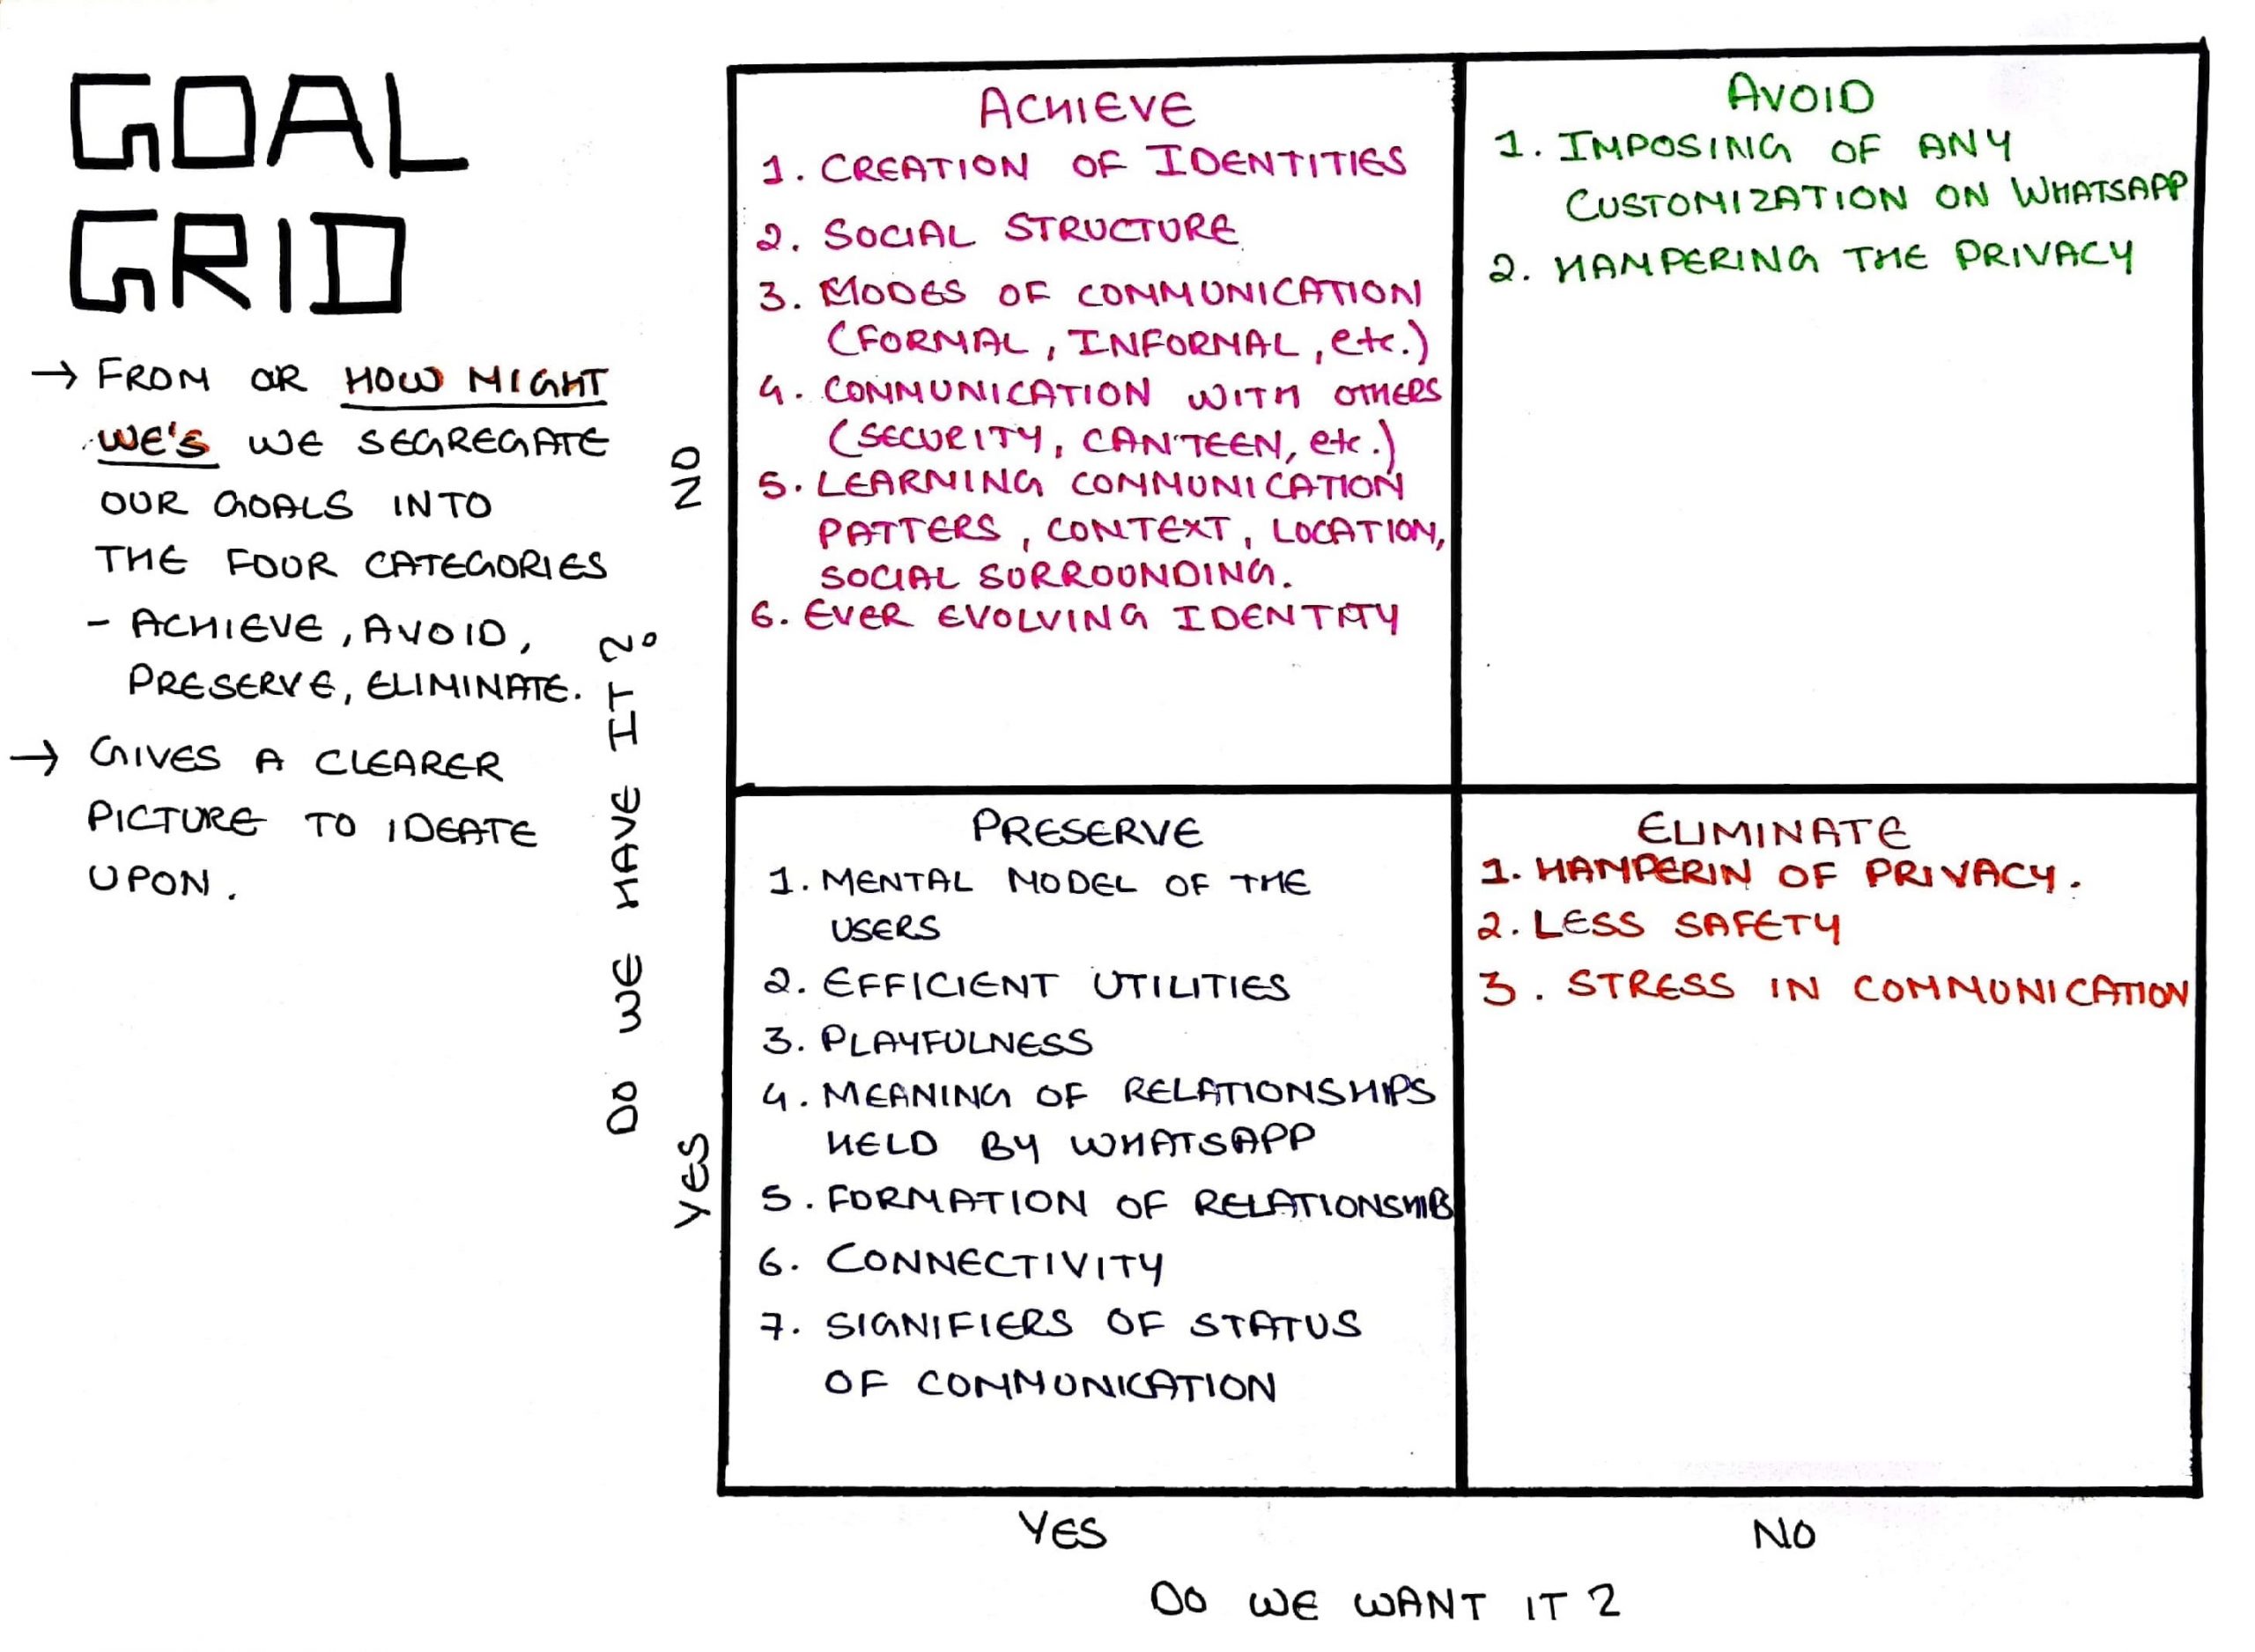 GOAL
GRID
→ FROM OR HOW MIGHT
WE'S WE SEGREGATE
OUR GOALS INTO
THE FOUR CATEGORIES
- ACHIEVE, AVOID,
PRESERVE, ELIMINATE.
→ GIVES A CLEARER
PICTURE TO IDEATE
UPON.
DO WE HAVE IT ?
NO
YES
ACHIEVE
1. CREATION OF IDENTITIES
2. SOCIAL STRUCTURE
3. MODES OF COMMUNICATION
(FORMAL, INFORMAL, etc.)
4. COMMUNICATION WITH OTHERS
(SECURITY, CANTEEN, etc.)
5. LEARNING COMMUNICATION
PATTERS, CONTEXT, LOCATION,
SOCIAL SURROUNDING.
6. EVER EVOLVING IDENTITY
AVOID
1. IMPOSING OF ANY
CUSTOMIZATION ON WHATSAPP
2. HAMPERING THE PRIVACY
PRESERVE
1. MENTAL MODEL OF THE
USERS
2. EFFICIENT UTILITIES
3. PLAYFULNESS
4. MEANING OF RELATIONSHIPS
HELD BY WHATSAPP
5. FORMATION OF RELATIONSHIPS
6. CONNECTIVITY
7. SIGNIFIERS OF STATUS
OF COMMUNICATION
ELIMINATE
1. HAMPERIN OF PRIVACY.
2. LESS SAFETY
3. STRESS IN COMMUNICATION
YES
NO
DO WE WANT IT ?